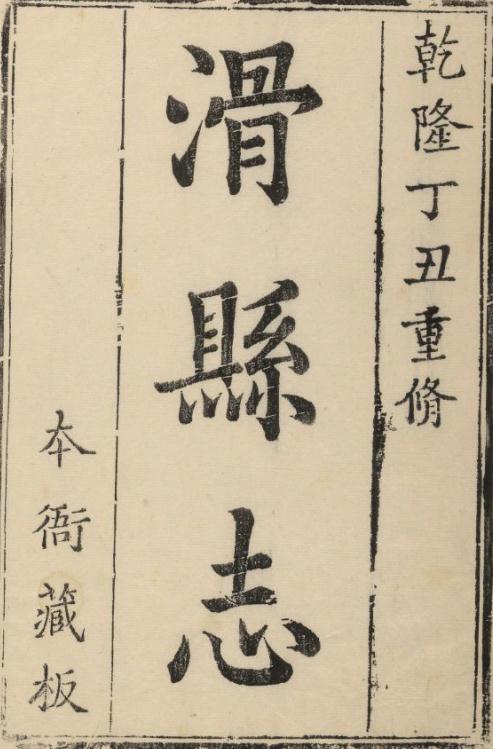 乾隆丁丑重脩
滑縣志
本衙藏板